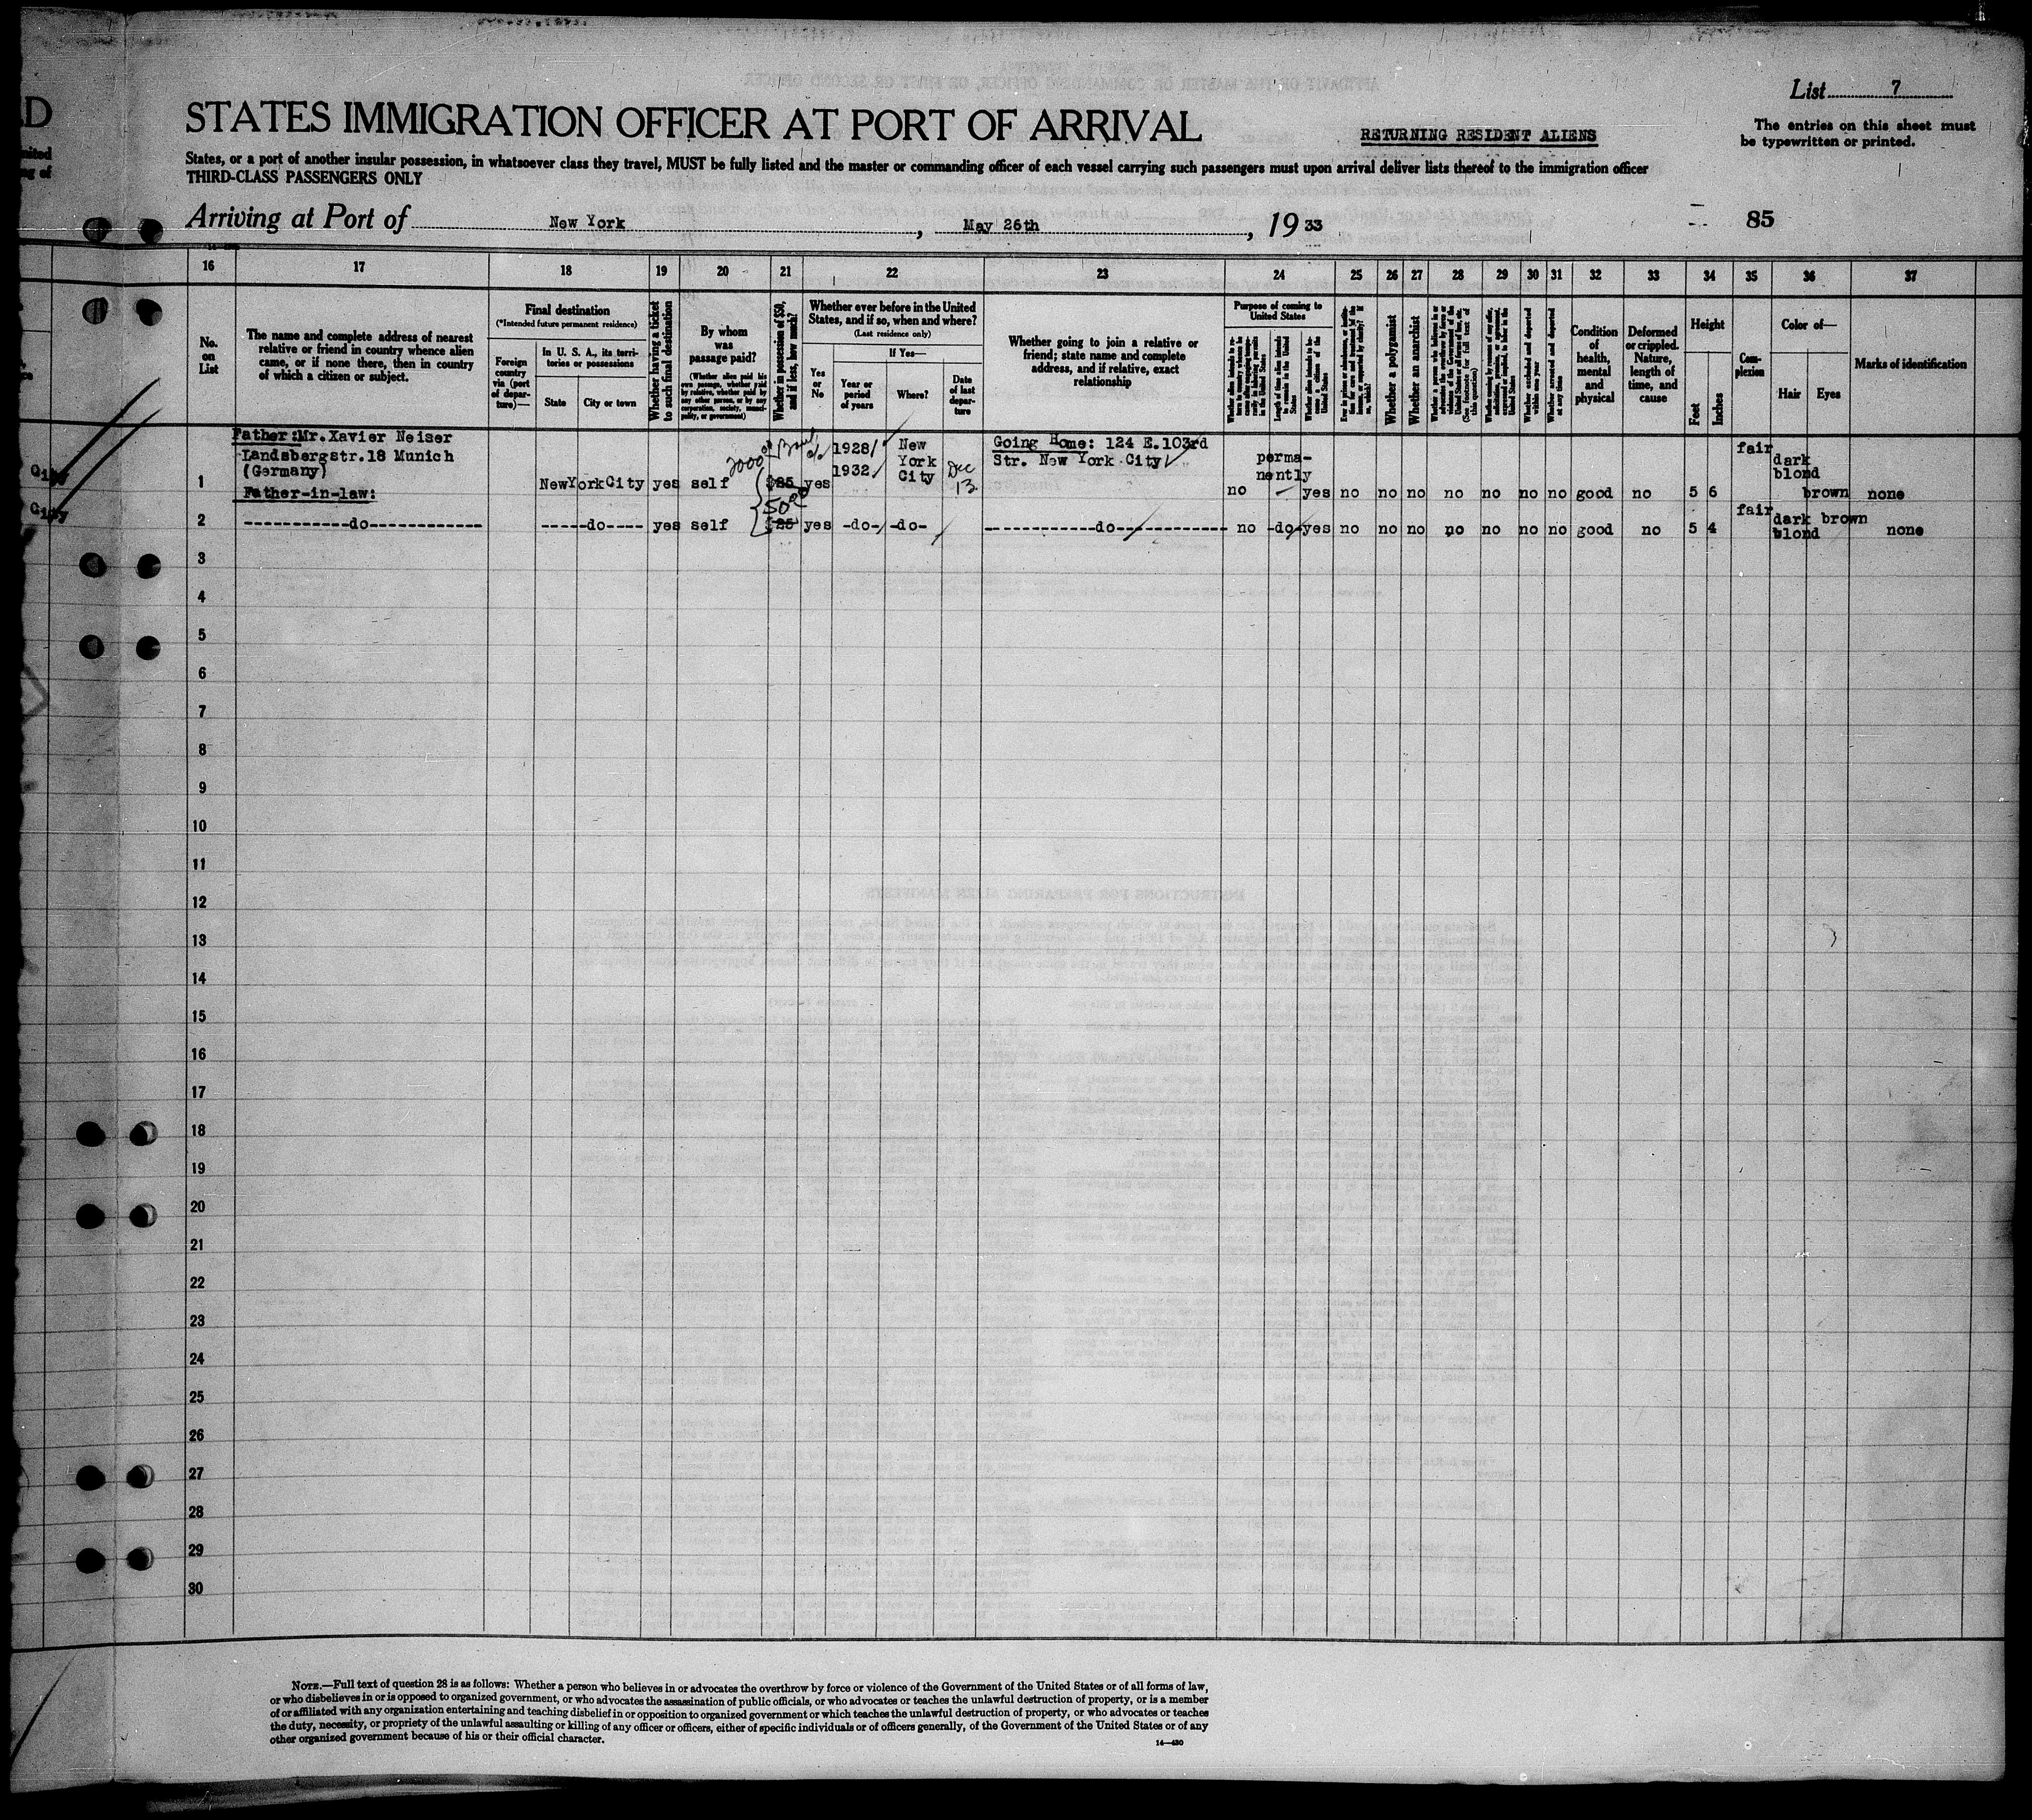 D
List 7
STATES IMMIGRATION OFFICER AT PORT OF ARRIVAL
RETURNING RESIDENT ALIENS
The entries on this sheet must
be typewritten or printed.
States, or a port of another insular possession, in whatsoever class they travel, MUST be fully listed and the master or commanding officer of each vessel carrying such passengers must upon arrival deliver lists thereof to the immigration officer
THIRD-CLASS PASSENGERS ONLY
Arriving at Port of New York, May 26th, 1933
85
16 17 18 19 20 21 22 23 24 25 26 27 28 29 30 31 32 33 34 35 36 37
No. on List
The name and complete address of nearest
relative or friend in country whence alien
came, or if none there, then in country
of which a citizen or subject.
Final destination
(*Intended future permanent residence)
Foreign country via (port of departure)—
In U. S. A., its territories or possessions
State
City or town
Whether having a ticket to such final destination
By whom was passage paid?
(Whether alien paid his own passage, whether paid by relative, whether paid by any other person, or by any corporation, society, municipality, or government)
Whether in possession of $50, and if less, how much?
Whether ever before in the United
States, and if so, when and where?
(Last residence only)
Yes or No
If Yes—
Year or period of years
Where?
Date of last departure
Whether going to join a relative or
friend; state name and complete
address, and if relative, exact
relationship
Purpose of coming to United States
Length of time alien intends to remain in the United States
Whether alien intends to become a citizen of the United States
Whether a polygamist
Whether an anarchist
(See footnote for full text of this question)
Whether excluded and deported within one year
Whether arrested and deported at any time
Condition of health, mental and physical
Deformed or crippled. Nature, length of time, and cause
Height
Feet
Inches
Complexion
Color of—
Hair
Eyes
Marks of identification
Father:Mr.Xavier Neiser
Landsbergstr.18 Munich
(Germany)
1 NewYorkCity yes self $25 yes 1928/ 1932/ New York City Dec 13
2000 00
50 00
Going Home: 124 E.103rd
Str. New York City
no permanently yes no no no no no no no good no 5 6 fair dark blond brown none
Father-in-law:
2 -----------do------------ -----do---- yes self $25 yes -do- -do- -----------do----------- no -do- yes no no no no no no no good no 5 4 fair dark blond brown none
3
4
5
6
7
8
9
10
11
12
13
14
15
16
17
18
19
20
21
22
23
24
25
26
27
28
29
30
NOTE.—Full text of question 28 is as follows: Whether a person who believes in or advocates the overthrow by force or violence of the Government of the United States or of all forms of law,
or who disbelieves in or is opposed to organized government, or who advocates the assassination of public officials, or who advocates or teaches the unlawful destruction of property, or is a member
of or affiliated with any organization entertaining and teaching disbelief in or opposition to organized government or which teaches the unlawful destruction of property, or who advocates or teaches
the duty, necessity, or propriety of the unlawful assaulting or killing of any officer or officers, either of specific individuals or of officers generally, of the Government of the United States or of any
other organized government because of his or their official character.
14—430